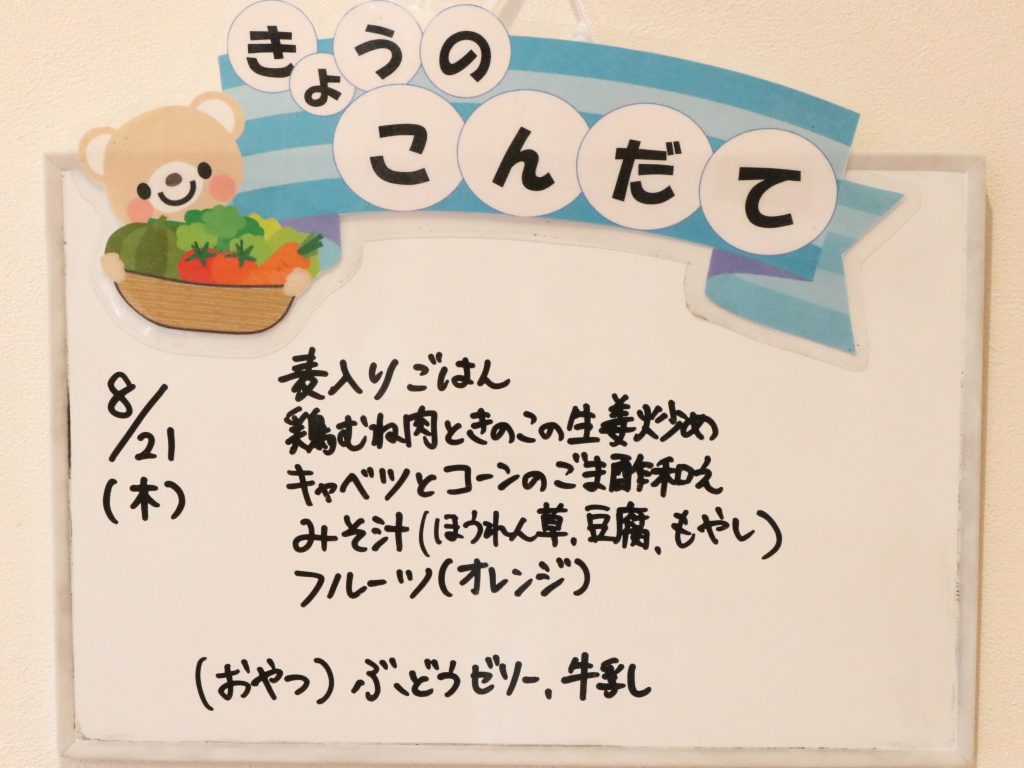 きょうの
こんだて
8/21
(木)
麦入りごはん
鶏むね肉ときのこの生姜炒め
キャベツとコーンのごま酢和え
みそ汁(ほうれん草、豆腐、もやし)
フルーツ(オレンジ)
(おやつ) ぶどうゼリー、牛乳